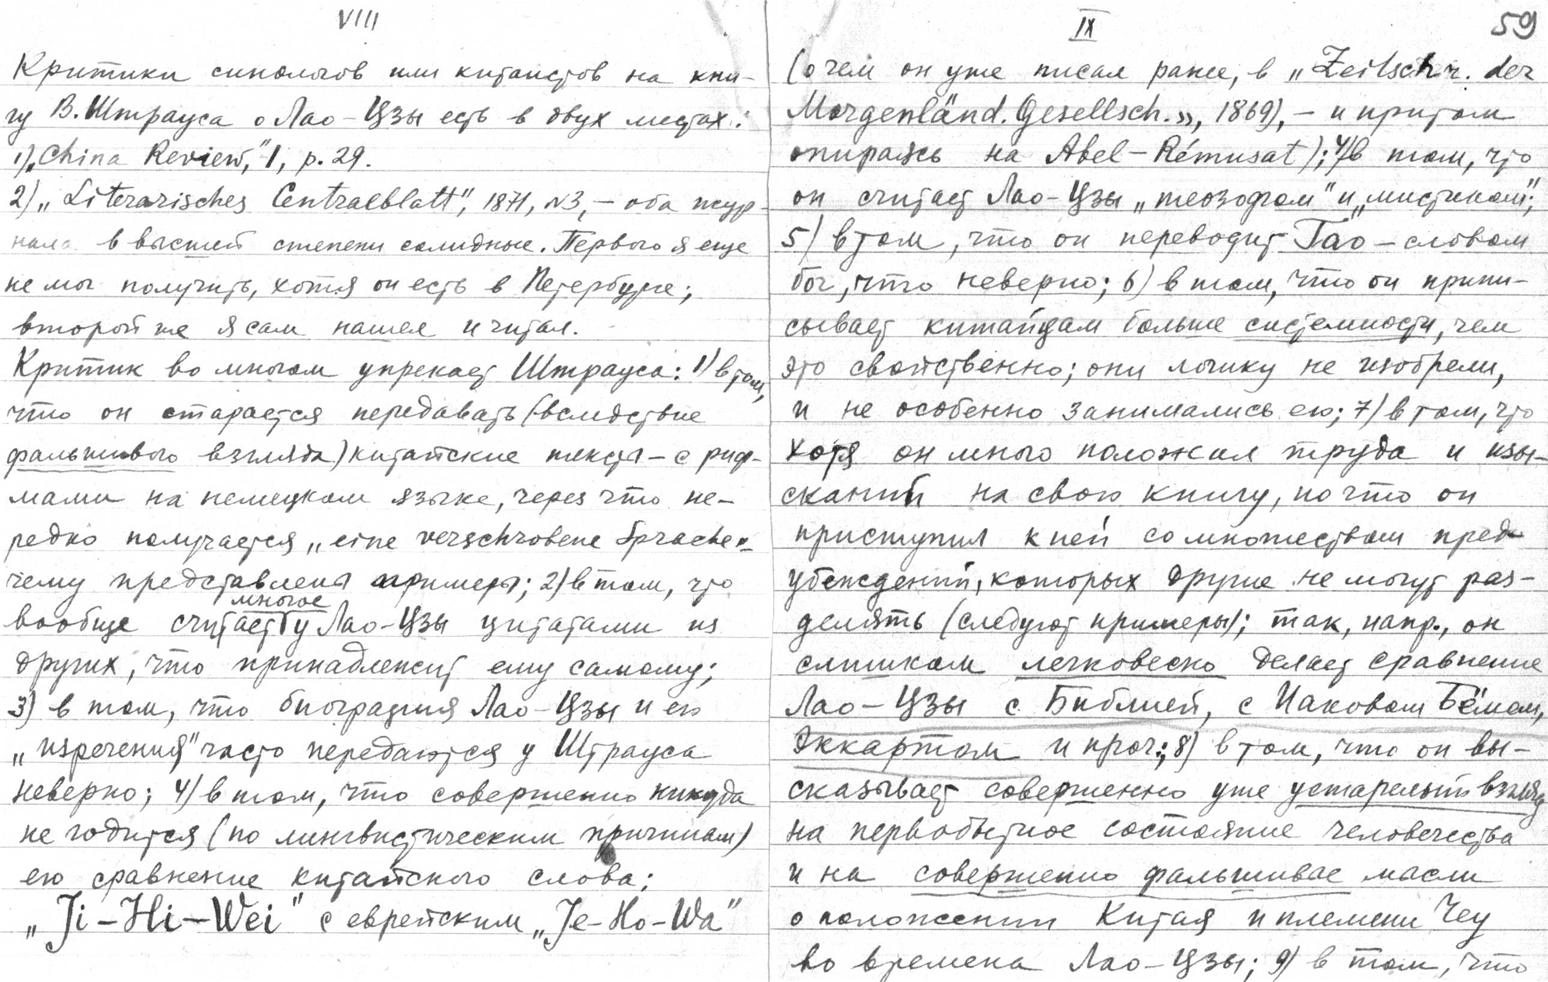 VIII
Критики синологов или китаистов на кни-
гу В. Штрауса о Лао-Цзы есть в двух местах:
1) „China Review," 1, p. 29.
2) „Literarisches Centralblatt", 1871, №3, – оба жур-
нала в высшей степени солидные. Первого я еще
не мог получить, хотя он есть в Петербурге;
второй же я сам нашел и читал.
Критик во многом упрекает Штрауса: 1) в том,
что он старается передавать (вследствие
фальшивого взгляда) китайские тексты – с риф-
мами на немецком языке, через что не-
редко получается „eine verschrobene Sprache",
чему представлены примеры; 2) в том, что
вообще считает многое у Лао-Цзы цитатами из
других, что принадлежит ему самому;
3) в том, что биография Лао-Цзы и его
„изречения" часто передаются у Штрауса
неверно; 4) в том, что совершенно никуда
не годится (по лингвистическим причинам)
его сравнение китайского слова:
„Ji-Hi-Wei" с еврейским „Je-Ho-Wa"
IX
59
(о чем он уже писал ранее, в „Zeitschr. der
Morgenländ. Gesellsch.», 1869), – и притом
опираясь на Abel-Rémusat); 4) в том, что
он считает Лао-Цзы „теозофом" и „мистиком";
5) в том, что он переводит Тао – словом
бог, что неверно; 6) в том, что он припи-
сывает китайцам больше системности, чем
это свойственно; они логику не изобрели,
и не особенно занимались ею; 7) в том, что
хотя он много положил труда и изы-
сканий на свою книгу, но что он
приступил к ней со множеством пред-
убеждений, которых другие не могут раз-
делять (следуют примеры); так, напр., он
слишком легковесно делает сравнение
Лао-Цзы с Библией, с Иаковом Бёмом,
Эккартом и проч.; 8) в том, что он вы-
сказывает совершенно уже устарелый взгляд
на первобытное состояние человечества
и на совершенно фальшивые мысли
о положении Китая и племени Чеу
во времена Лао-Цзы; 9) в том, что